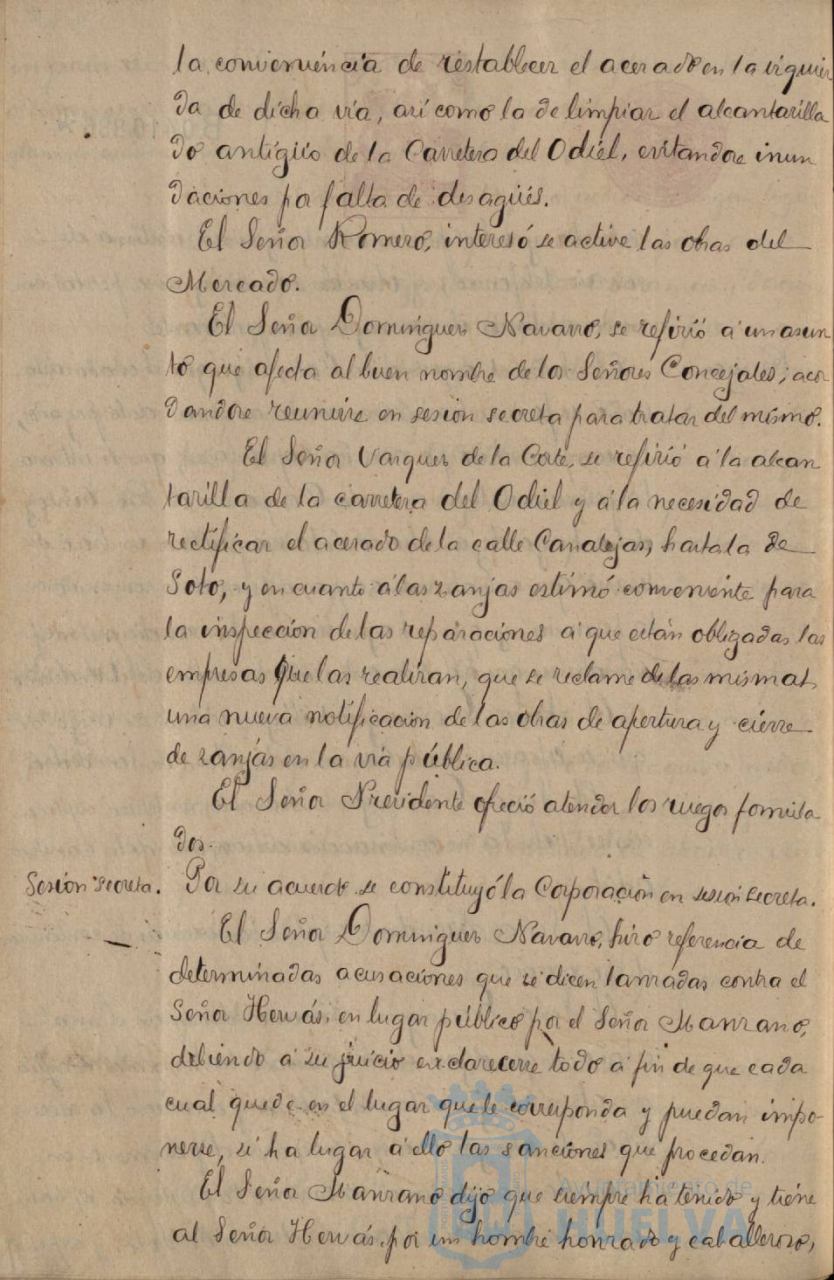 la conveniencia de restablecer el acerado en la izquier
da de dicha via, asi como la de limpiar el alcantarilla
do antigüo de la Carretera del Odiel, evitandose inun
daciones por falta de desagües.
El Señor Romero, interesó se active las obras del
Mercado.
El Señor Dominguez Navarro, se refirió á un asun
to que afecta al buen nombre de los Señores Concejales; acor
dandose reunirse en sesion secreta para tratar del mismo.
El Señor Vazquez de la Corte, se refirió á la alcan
tarilla de la carretera del Odiel y á la necesidad de
rectificar el acerado de la calle Canalejas, hasta la de
Soto, y en cuanto á las zanjas estimó conveniente para
la inspeccion de las reparaciones á que están obligadas las
empresas que las realizan, que se reclame de las mismas,
una nueva notificacion de las obras de apertura y cierre
de zanjas en la via pública.
El Señor Presidente ofreció atender los ruegos formula
dos.
Sesión secreta. Por su acuerdo se constituyó la Corporación en sesion secreta.
El Señor Dominguez Navarro, hizo referencia de
determinadas acusaciones que se dicen lanzadas contra el
Señor Hervás, en lugar público por el Señor Manzano,
debiendo á su juicio exclarecerse todo á fin de que cada
cual quede en el lugar que le corresponda y puedan impo-
nerse, si ha lugar á ello las sanciones que procedan.
El Señor Manzano dijo que siempre ha tenido y tiene
al Señor Hervás, por un hombre honrado y caballeroso,
Ayuntamiento de
HUELVA